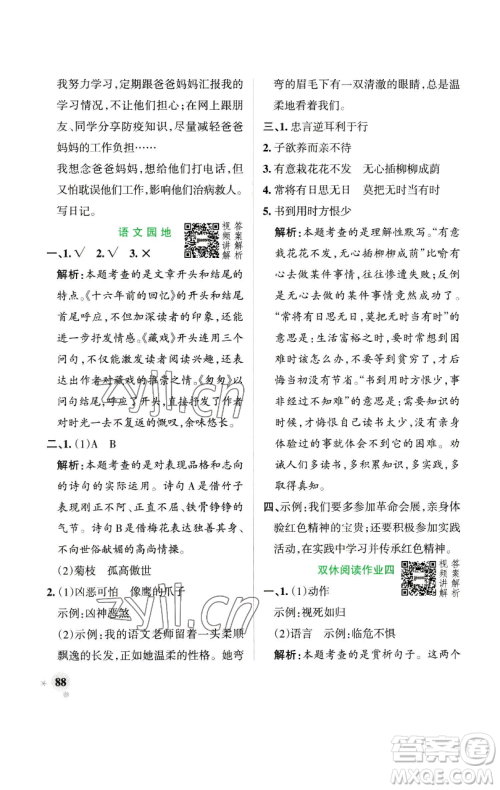 我努力学习，定期跟爸爸妈妈汇报我的
学习情况，不让他们担心；在网上跟朋
友、同学分享防疫知识，尽量减轻爸爸
妈妈的工作负担……
我很想爸爸妈妈，想给他们打电话，但
又怕耽误他们工作，影响他们治病救人。
写日记。
语文园地
视频讲解
答案解析
一、1.√ 2.√ 3.×
解析：本题考查的是文章开头和结尾的
特点。《十六年前的回忆》的开头和结尾
首尾呼应，不仅加深读者的印象，还能
抒发情感。《藏戏》开头连用三个
问句，不仅能激发读者阅读兴趣，还能
表达出作者对藏戏的推崇之情。《匆匆》以
问句结尾，与开头呼应了开头，表达了作者
对时光一去不复返的无奈，余味悠长。
二、1.(1)A B
解析：本题考查的是对表现品格和志向
的诗句的积累和理解。诗句 A 是借竹子
表现志向不阿、正直不屈、铁骨铮铮的气
节。诗句 B 是借梅花表现自己不向
世俗献媚的高尚情操。
(2)菊枝 孤高傲世
2.(1)凶恶可怕 像鹰的爪子
示例：凶神恶煞
(2)示例：我的语文老师留着一头柔顺
飘逸的长发，正如她温柔的性格。她弯
弯的眉毛下有一双清澈的眼睛，总是温
柔地看着我们。
三、1.忠言逆耳利于行
2.子欲养而亲不待
3.有意栽花花不发 无心插柳柳成荫
4.常将有日思无日 莫把无时当有时
5.书到用时方恨少
解析：本题考查的是理解性默写。“有意
栽花花不发，无心插柳柳成荫”比喻有
心去做某件事情，往往遭受失败；反倒
是无心去做的某件事情，意外获得成功。
“常将有日思无日，莫把无时当有时”
的意思是：生活富裕之时，也要考虑到
可能会出现的贫困。“书到用时方恨少，
事非经过不知难”的意思是：知识总是在
运用时才让人感到读书太少，没有亲身
体验过的事不知道它的困难。劝诫人们
要勤奋学习，注重实践，多读书，才能获
取真知。
四、示例：我们要多参加革命会展，亲身体
验红色精神的宝贵；还要积极参加实践
活动，大力弘扬红色精神。
双休阅读作业四
视频讲解
答案解析
一、1.(1)动作
示例：视死如归
(2)语言 示例：临危不惧
解析：本题考查的是赏析句子。这两个
88
zyjl.cn
zyjl.cn
答案圈
MXQE.COM